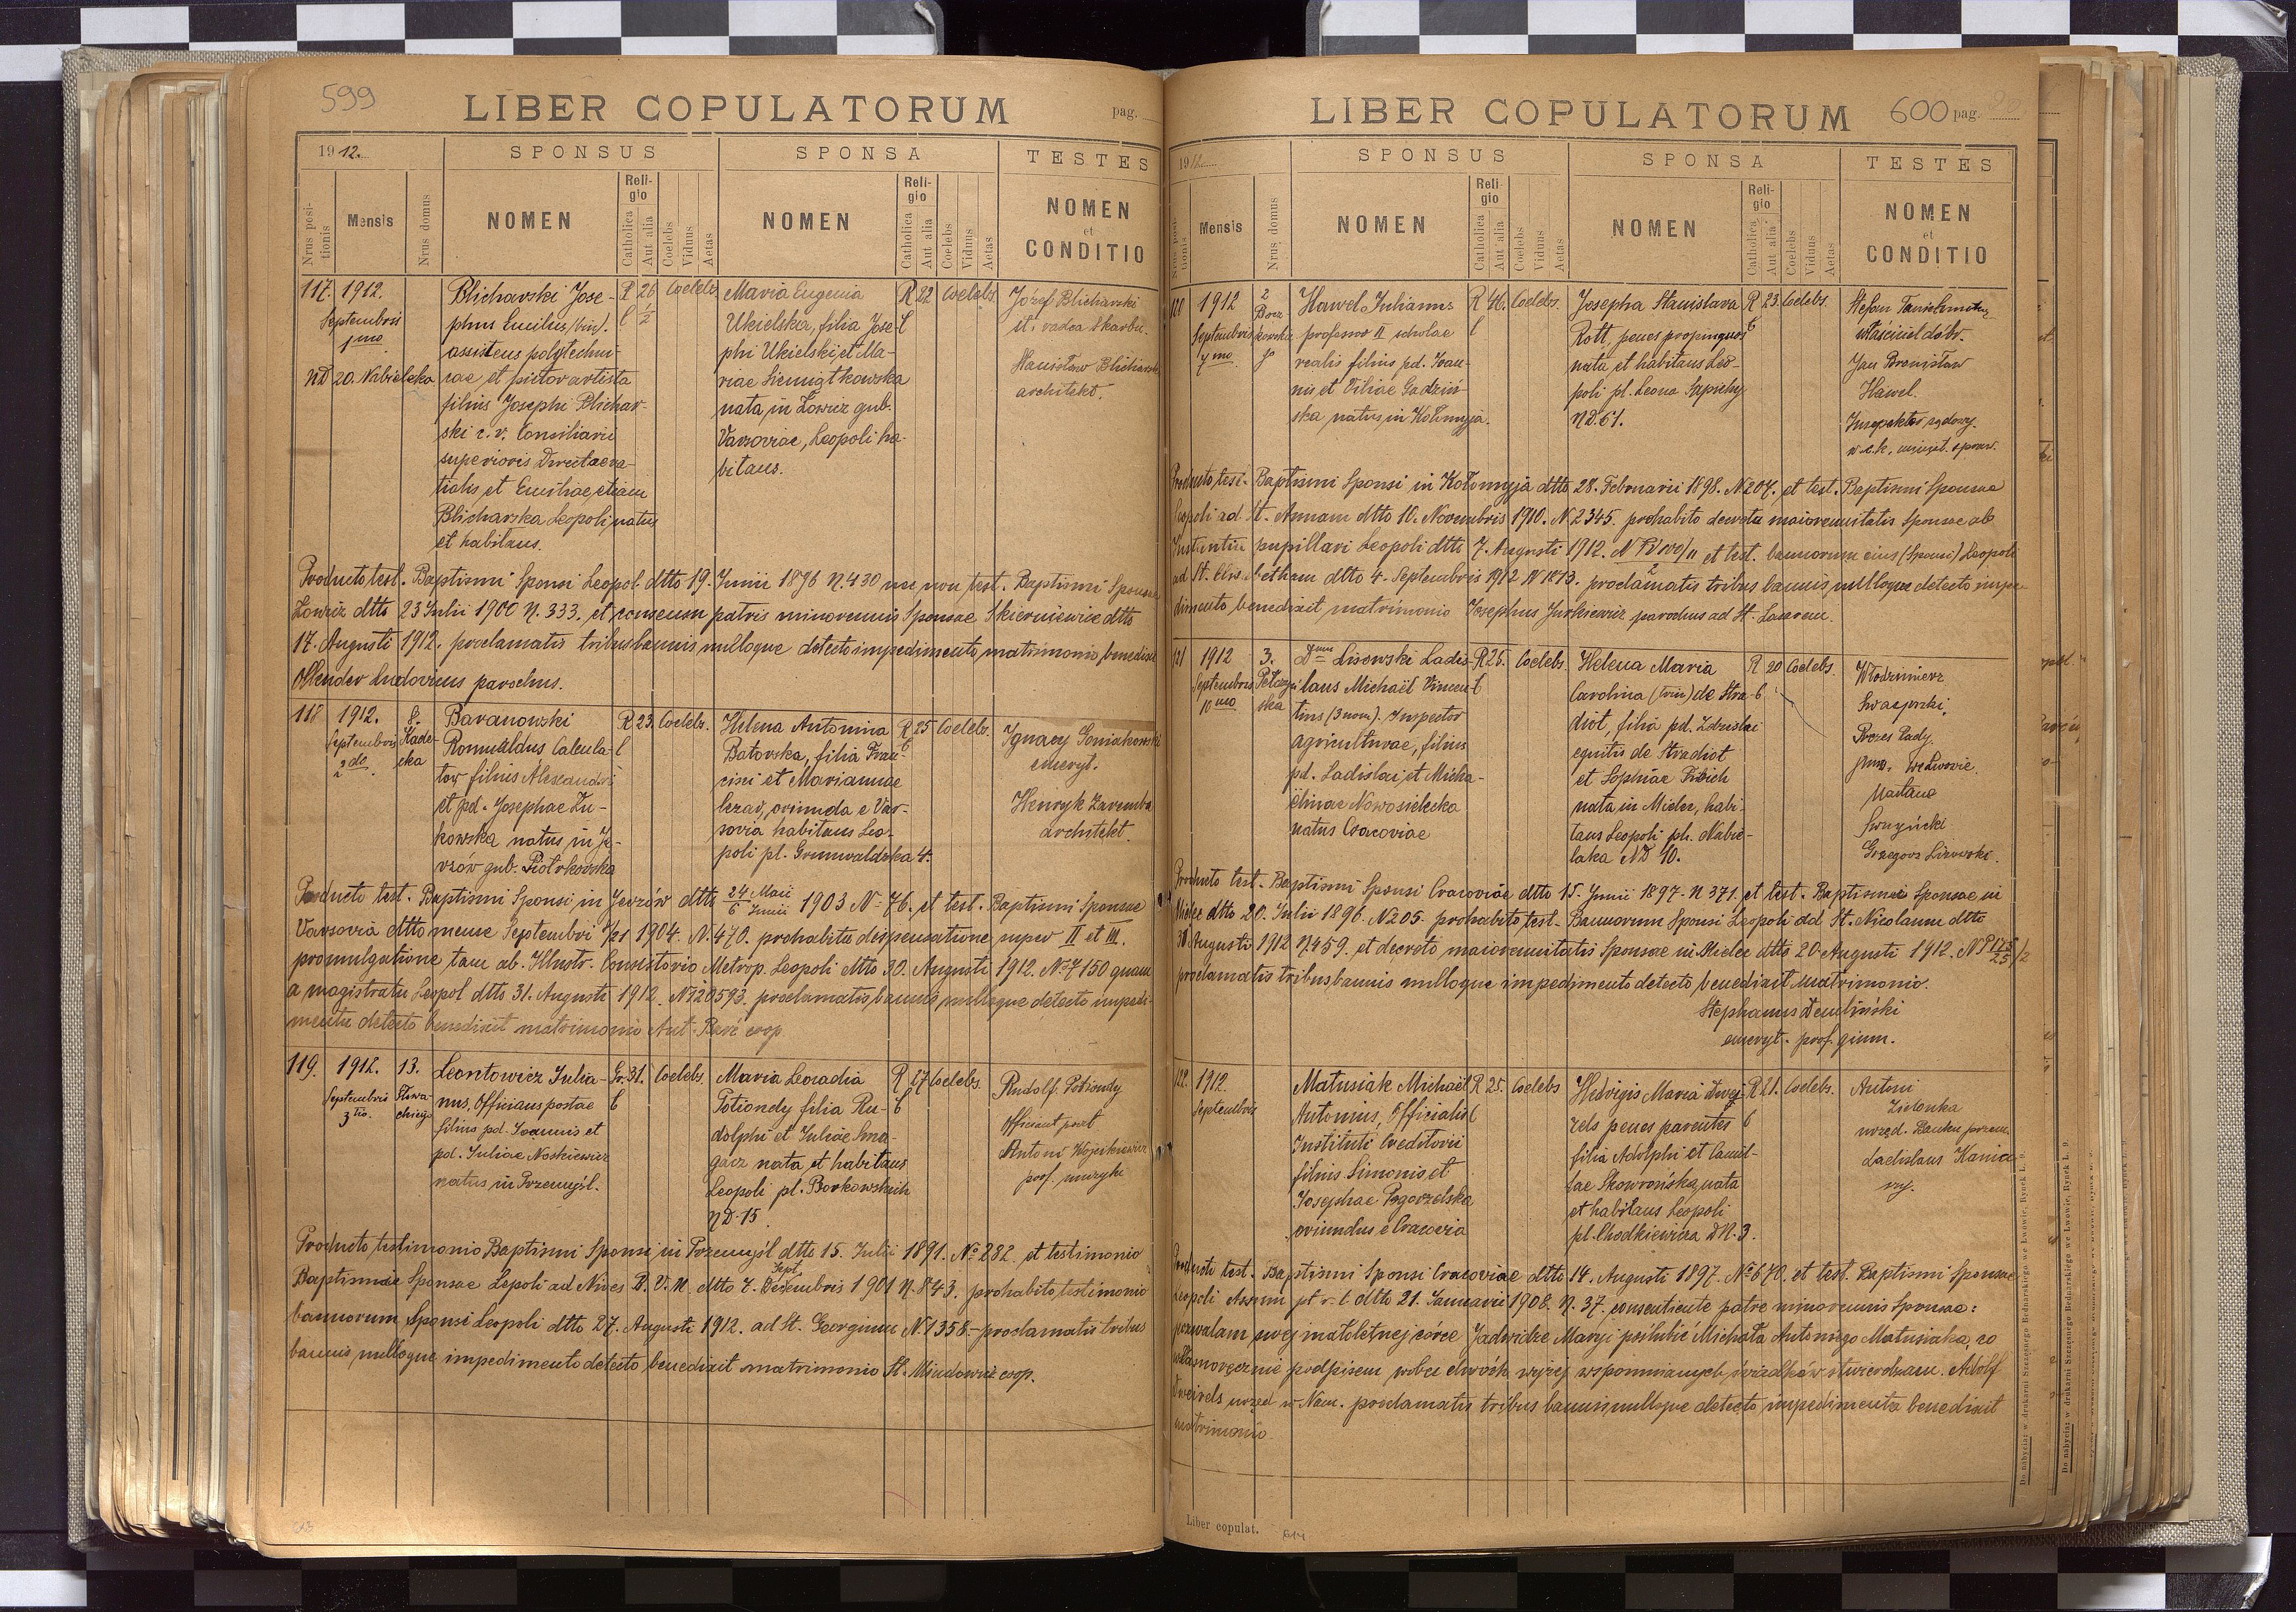 599
LIBER COPULATORUM
pag.
1912.
SPONSUS
SPONSA
TESTES
Nrus positionis
Mensis
Nrus domus
NOMEN
Religio
Catholica
Aut alia
Coelebs
Viduus
Aetas
NOMEN
Religio
Catholica
Aut alia
Coelebs
Viduus
Aetas
NOMEN
et
CONDITIO
117. 1912.
Septembris
1mo
ND 20. Nabielaka
Blicharski Jose-
phus Emilius (bin).
assistens polytechni-
cae et pictor artista
filius Josephi Blichar-
ski c. r. Consiliarii
superioris
et Emiliae etiam
Blicharska Leopoli natus
et habitans.
R 26 Coelebs
C 1/2
Maria Eugenia
Ukielska, filia Jose-
phi Ukielski et Ma-
riae Siemiątkowska
nata in Łowicz gub.
Varsoviae, Leopoli ha-
bitans.
R 22 Coelebs.
C
Józef Blicharski
st. radca skarbu.
Stanisław Blicharski
architekt.
Producto test. Baptismi Sponsi Leopol. dtto 19. Junii 1896 N. 430 nec non test. Baptismi Sponsae
Łowicz dtto 23 Julii 1900 N. 333. et consensu patris minorennis Sponsae Skierniewice dtto
17. Augusti 1912. proclamatis tribus bannis nulloque detecto impedimento, matrimonio benedixit
Ollender Ludovicus parochus.
118 1912.
Septembris
2do.
8.
Kade-
cka
Baranowski
Romualdus Calcula-
tor filius Alexandri
et pd. Josephae Żu-
kowska natus in Je-
żów gub. Piotrkowska
R 23. Coelebs.
C
Helena Antonina
Batorska, filia Fran-
cisci et Mariannae
Cezar, oriunda e Var-
sovia habitans Leo-
poli pl. Grunwaldzka 4.
R 25 Coelebs.
C
Ignacy
emeryt.
Henryk Zaremba
architekt.
Producto test. Baptismi Sponsi in Jeżów dtto 24 Maii / 6 Junii 1903 N 76. et test. Baptismi Sponsae
Varsovia dtto mense Septembri 1904. N. 470. prohabita dispensatione super II et III.
promulgatione tam ab. Illustr. Consistorio Metrop. Leopoli dtto 30. Augusti 1912. N. 7150 quam
a magistratu Leopol dtto 31. Augusti 1912. N. 120593. proclamatis bannis nulloque detecto impedi-
mento detecto benedixit matrimonio Ant. coop
119. 1912.
Septembris
3tio.
13.
Tłoma-
ckiego
Leontowicz Julia-
nus, Officians postae
filius pd. Joannis et
pd. Juliae Noskiewicz
natus in Przemyśl.
Gr. 31. Coelebs.
C
Maria Leocadia
Potiondy filia Ru-
dolphi et Juliae Sma-
garz nata et habitans
Leopoli pl. Borkowskich
ND. 15.
R 27 Coelebs.
C
Rudolf Potiondy
officiant poczt
Antoni Wojciechowicz
prof. muzyki
Producto testimonio Baptismi Sponsi in Przemyśl dtto 15. Julii 1891. No 282. et testimonio
Sept.
Baptismi Sponsae Lepoli ad Nives B. V. M. dtto 7. Decembris 1901 N. 843. prohabito testimonio
bannorum Sponsi Leopoli dtto 27. Augusti 1912. ad St. Georgium N. 1358.- proclamatis tribus
bannis nulloque impedimento detecto benedixit matrimonio St. Mindowicz coop.
LIBER COPULATORUM
600 pag.
1912
SPONSUS
SPONSA
TESTES
Nrus positionis
Mensis
Nrus domus
NOMEN
Religio
Catholica
Aut alia
Coelebs
Viduus
Aetas
NOMEN
Religio
Catholica
Aut alia
Coelebs
Viduus
Aetas
NOMEN
et
CONDITIO
120 1912
Septembris
7mo
2
Hawel Julianus
professor II scholae
realis filius pd. Joan-
nis et Viliae Gadziń-
ska natus in Kołomyja.
R 46. Coelebs.
C
Josepha Stanislava
Rott, penes propinquos
nata et habitans Leo-
poli pl. Leona Sapiehy
ND. 61.
R 23. Coelebs.
C
Stefan
właściciel dóbr.
Jan Bronisław
Hawel.
Inspektor rządowy.
w c.k. minist. spraw.
Producto test. Baptismi Sponsi in Kołomyja dtto 28. Februarii 1898. N 204. et test. Baptismi Sponsae
Leopoli ad St. Annam dtto 10. Novembris 1910. N 2345. prohabito decreto maiorennitatis Sponsae ab
Instantia pupillari Leopoli dtto 7. Augusti 1912. et test. bannorum eius (Sponsi) Leopoli
ad St. Elisabetham dtto 4. Septembris 1912 N 1813. proclamatis tribus bannis nulloque detecto impe-
dimento benedixit matrimonio Josephus Jurkiewicz parochus ad St. Lazarum.
121 1912
Septembris
10mo
3.
Pełczyń
ska
Lisowski Ladis-
laus Michaël Vincen-
tius (3 nom). Inspector
agriculturae, filius
pd. Ladislai et Micha-
ëlinae Nowosielecka
natus Cracoviae
R 25. Coelebs.
C
Helena Maria
Carolina (trin) de Stra-
diot, filia pd. Zdzislai
equitis de Stradiot
et Sophiae
nata in Mielec, habi-
tans Leopoli pl. Nabie-
laka ND 10.
R 20 Coelebs.
C
Włodzimierz
Prezes Sądy
we Lwowie
Grzegorz Lisowski.
Producto test. Baptismi Sponsi Cracoviae dtto 15. Junii 1897. N 371. et test. Baptismi Sponsae in
Mielec dtto 20. Julii 1896. N 205. prohabito test. Bannorum Sponsi Leopoli ad St. Nicolaum dtto
31 Augusti 1912 N 459. et decreto maiorennitatis Sponsae in Mielec dtto 20. Augusti 1912.
proclamatis tribus bannis nulloque impedimento detecto benedixit matrimonio.
Stephanus Dembiński
emeryt. prof. gimn.
122. 1912.
Septembris
Matusiak Michaël
Antonius, Officialis
Instituti Creditorii
filius Simonis et
Josephae Pogorzelska
oriundus e Cracovia
R 25. Coelebs
C
Hedvigis Maria Dwej-
rels penes parentes
filia Adolphi et Camil-
lae Skowrońska, nata
et habitans Leopoli
pl. Chodkiewicza DN. 3.
R 21. Coelebs.
C
Antoni
Zielonka
urzęd. Banku przem.
Ladislaus Kania
Producto test. Baptismi Sponsi Cracoviae dtto 14. Augusti 1897. No 670. et test. Baptismi Sponsae
Leopoli Assum pt r. l. dtto 21. Januarii 1908. N. 37. consentiente patre minorennis Sponsae:
pozwalam mej małoletniej córce Jadwidze Maryi poślubić Michała Antoniego Matusiaka, co
własnoręcznie podpisem wobec dwóch wyżej wspomnianych świadków stwierdzam. Adolf
Dwejrels urzęd w Nam. proclamatis tribus bannis nulloque detecto impedimento benedixit
matrimonio.
Liber copulat.